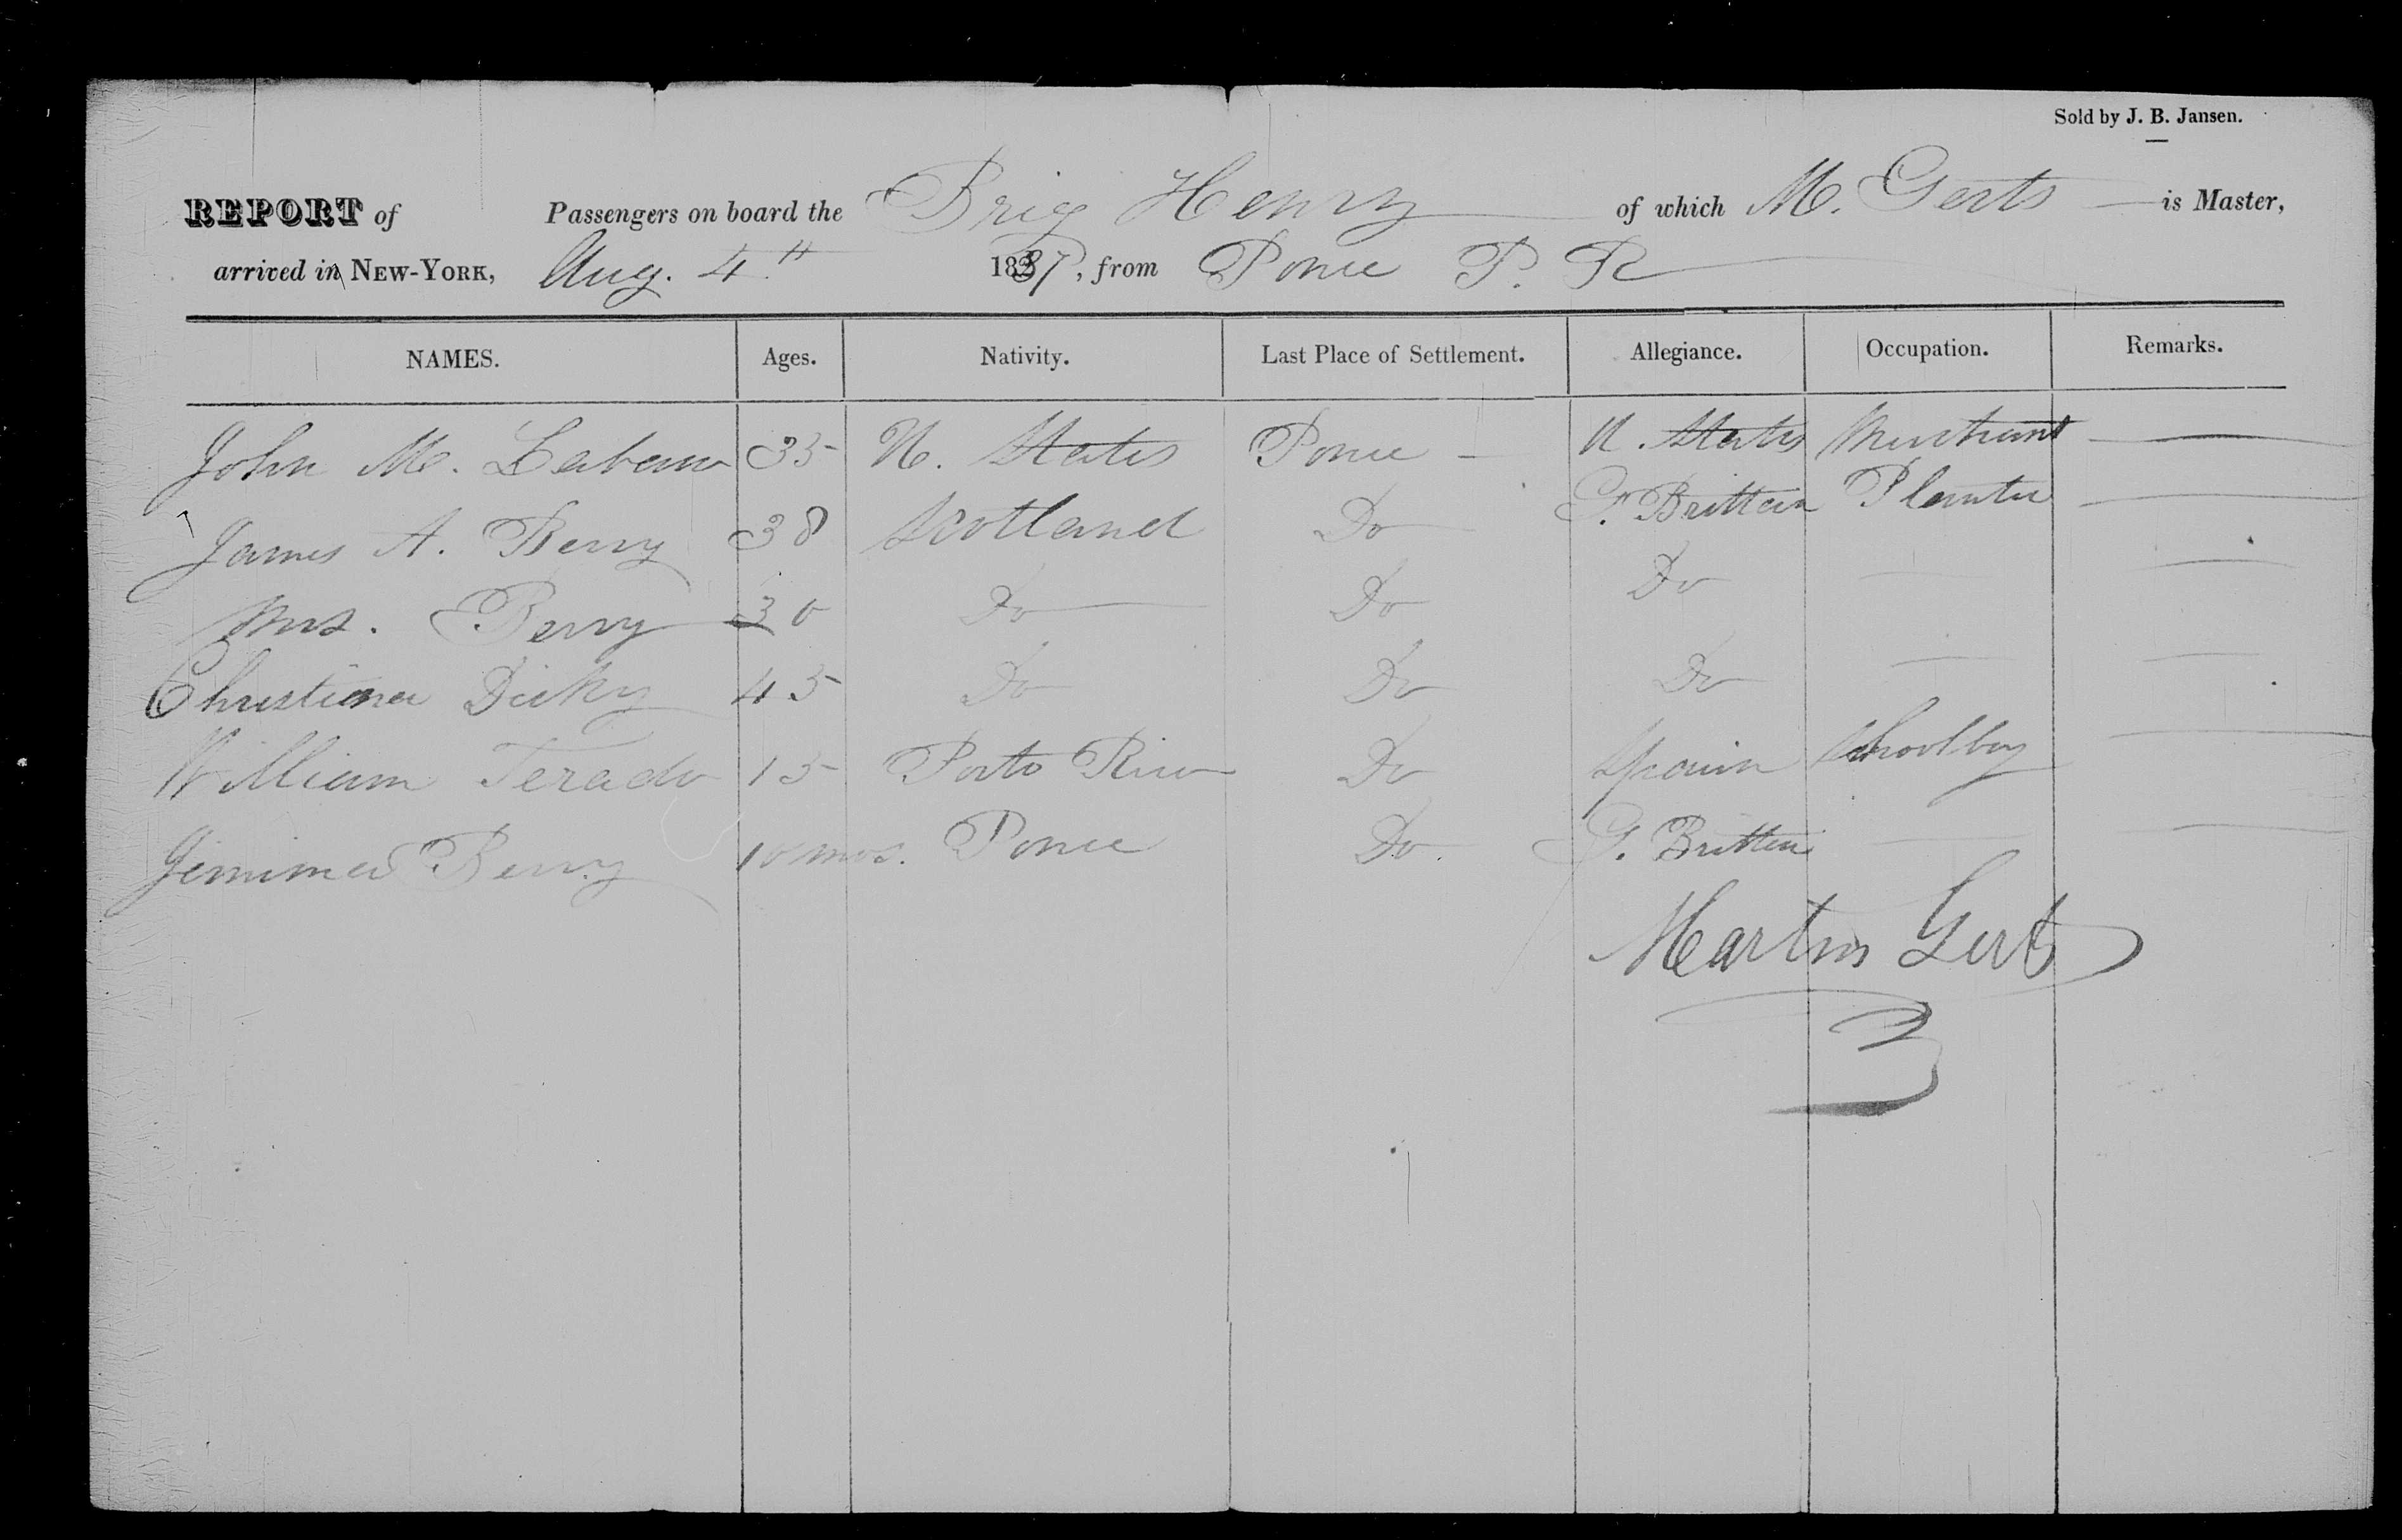 Sold by J. B. Jansen.
REPORT of Passengers on board the Brig Henry of which M. Gerts is Master,
arrived in NEW-YORK, Aug. 4th 1837, from Ponce P. R
NAMES. Ages. Nativity. Last Place of Settlement. Allegiance. Occupation. Remarks.
John M. 35 U. States Ponce U. States Merchant
James A. Berry 38 Scotland Do G. Brittain Planter
Mrs. Berry 30 Do Do Do
Christiana Dicky 45 Do Do Do
William Terado 15 Porto Rico Do Spain Schoolboy
Jemima Berry 10 mos. Ponce Do G. Brittain
Martin Gerts